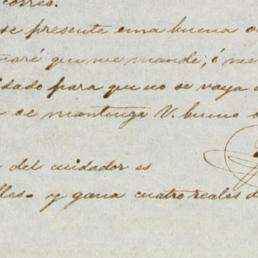 correo.
se presente una buena o
aré que me mande; ó me
idado para que no se vaya a
se mantenga V. bueno
del cuidador es
lles- y gana cuatro reales d